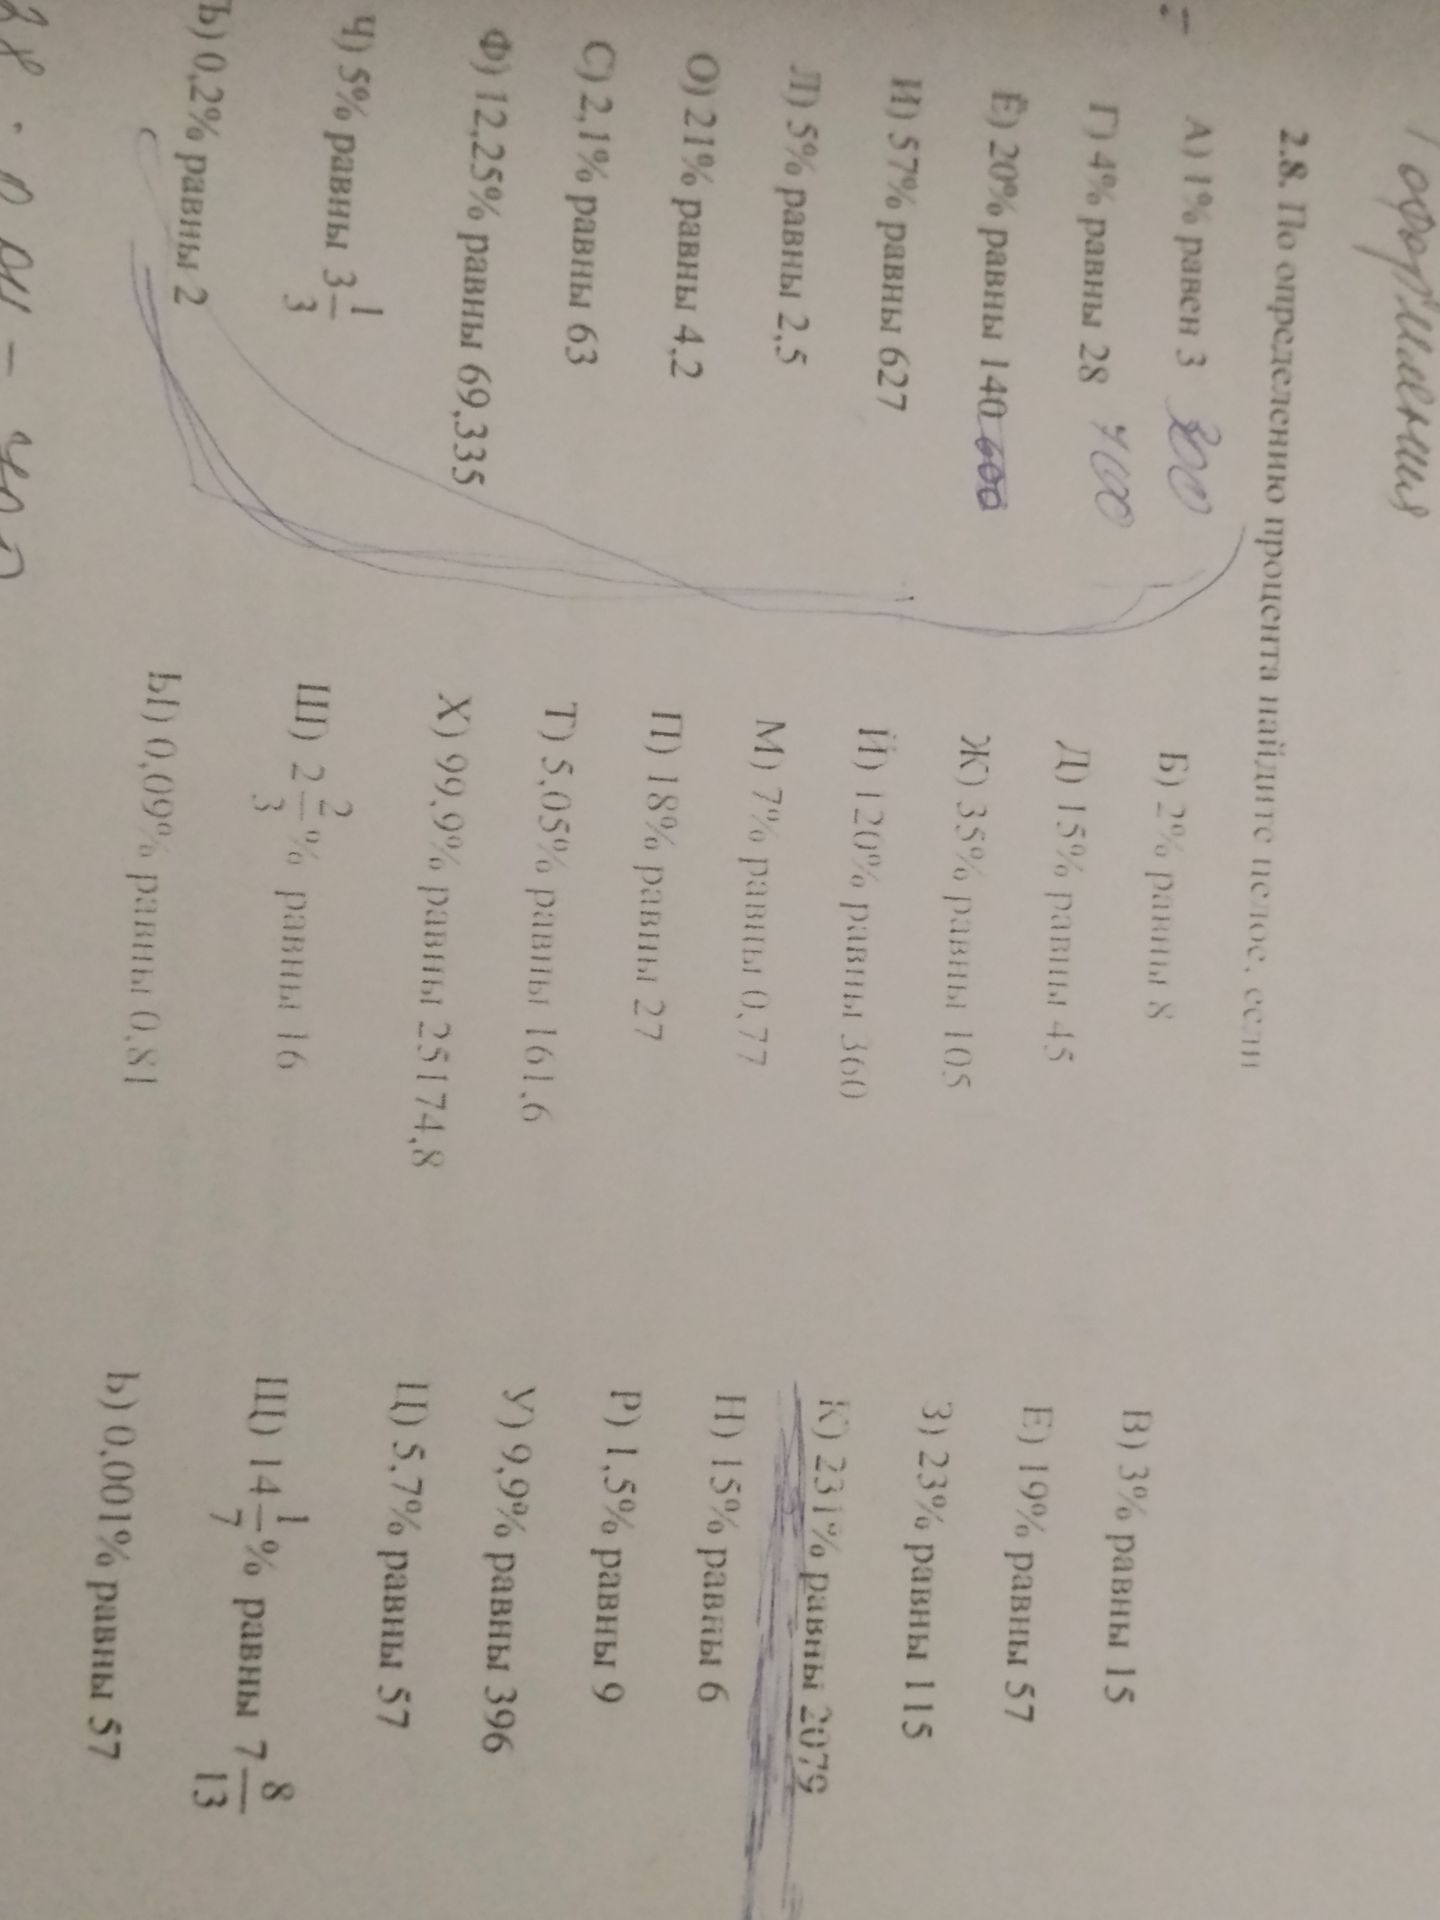 оформления
2.8. По определению процента найдите целое, если
А) 1% равен 3 300
Б) 2% равны 8
В) 3% равны 15
Г) 4% равны 28 700
Д) 15% равны 45
Е) 19% равны 57
Ё) 20% равны 140
Ж) 35% равны 105
З) 23% равны 115
И) 57% равны 627
Й) 120% равны 360
К) 231% равны 2079
Л) 5% равны 2,5
М) 7% равны 0,77
Н) 15% равны 6
О) 21% равны 4,2
П) 18% равны 27
Р) 1,5% равны 9
С) 2,1% равны 63
Т) 5,05% равны 161,6
У) 9,9% равны 396
Ф) 12,25% равны 69,335
Х) 99,9% равны 25174,8
Ц) 5,7% равны 57
Ч) 5% равны 3 1/3
Ш) 2 2/3 % равны 16
Щ) 14 1/7 % равны 7 8/13
Ъ) 0,2% равны 2
Ы) 0,09% равны 0,81
Ь) 0,001% равны 57